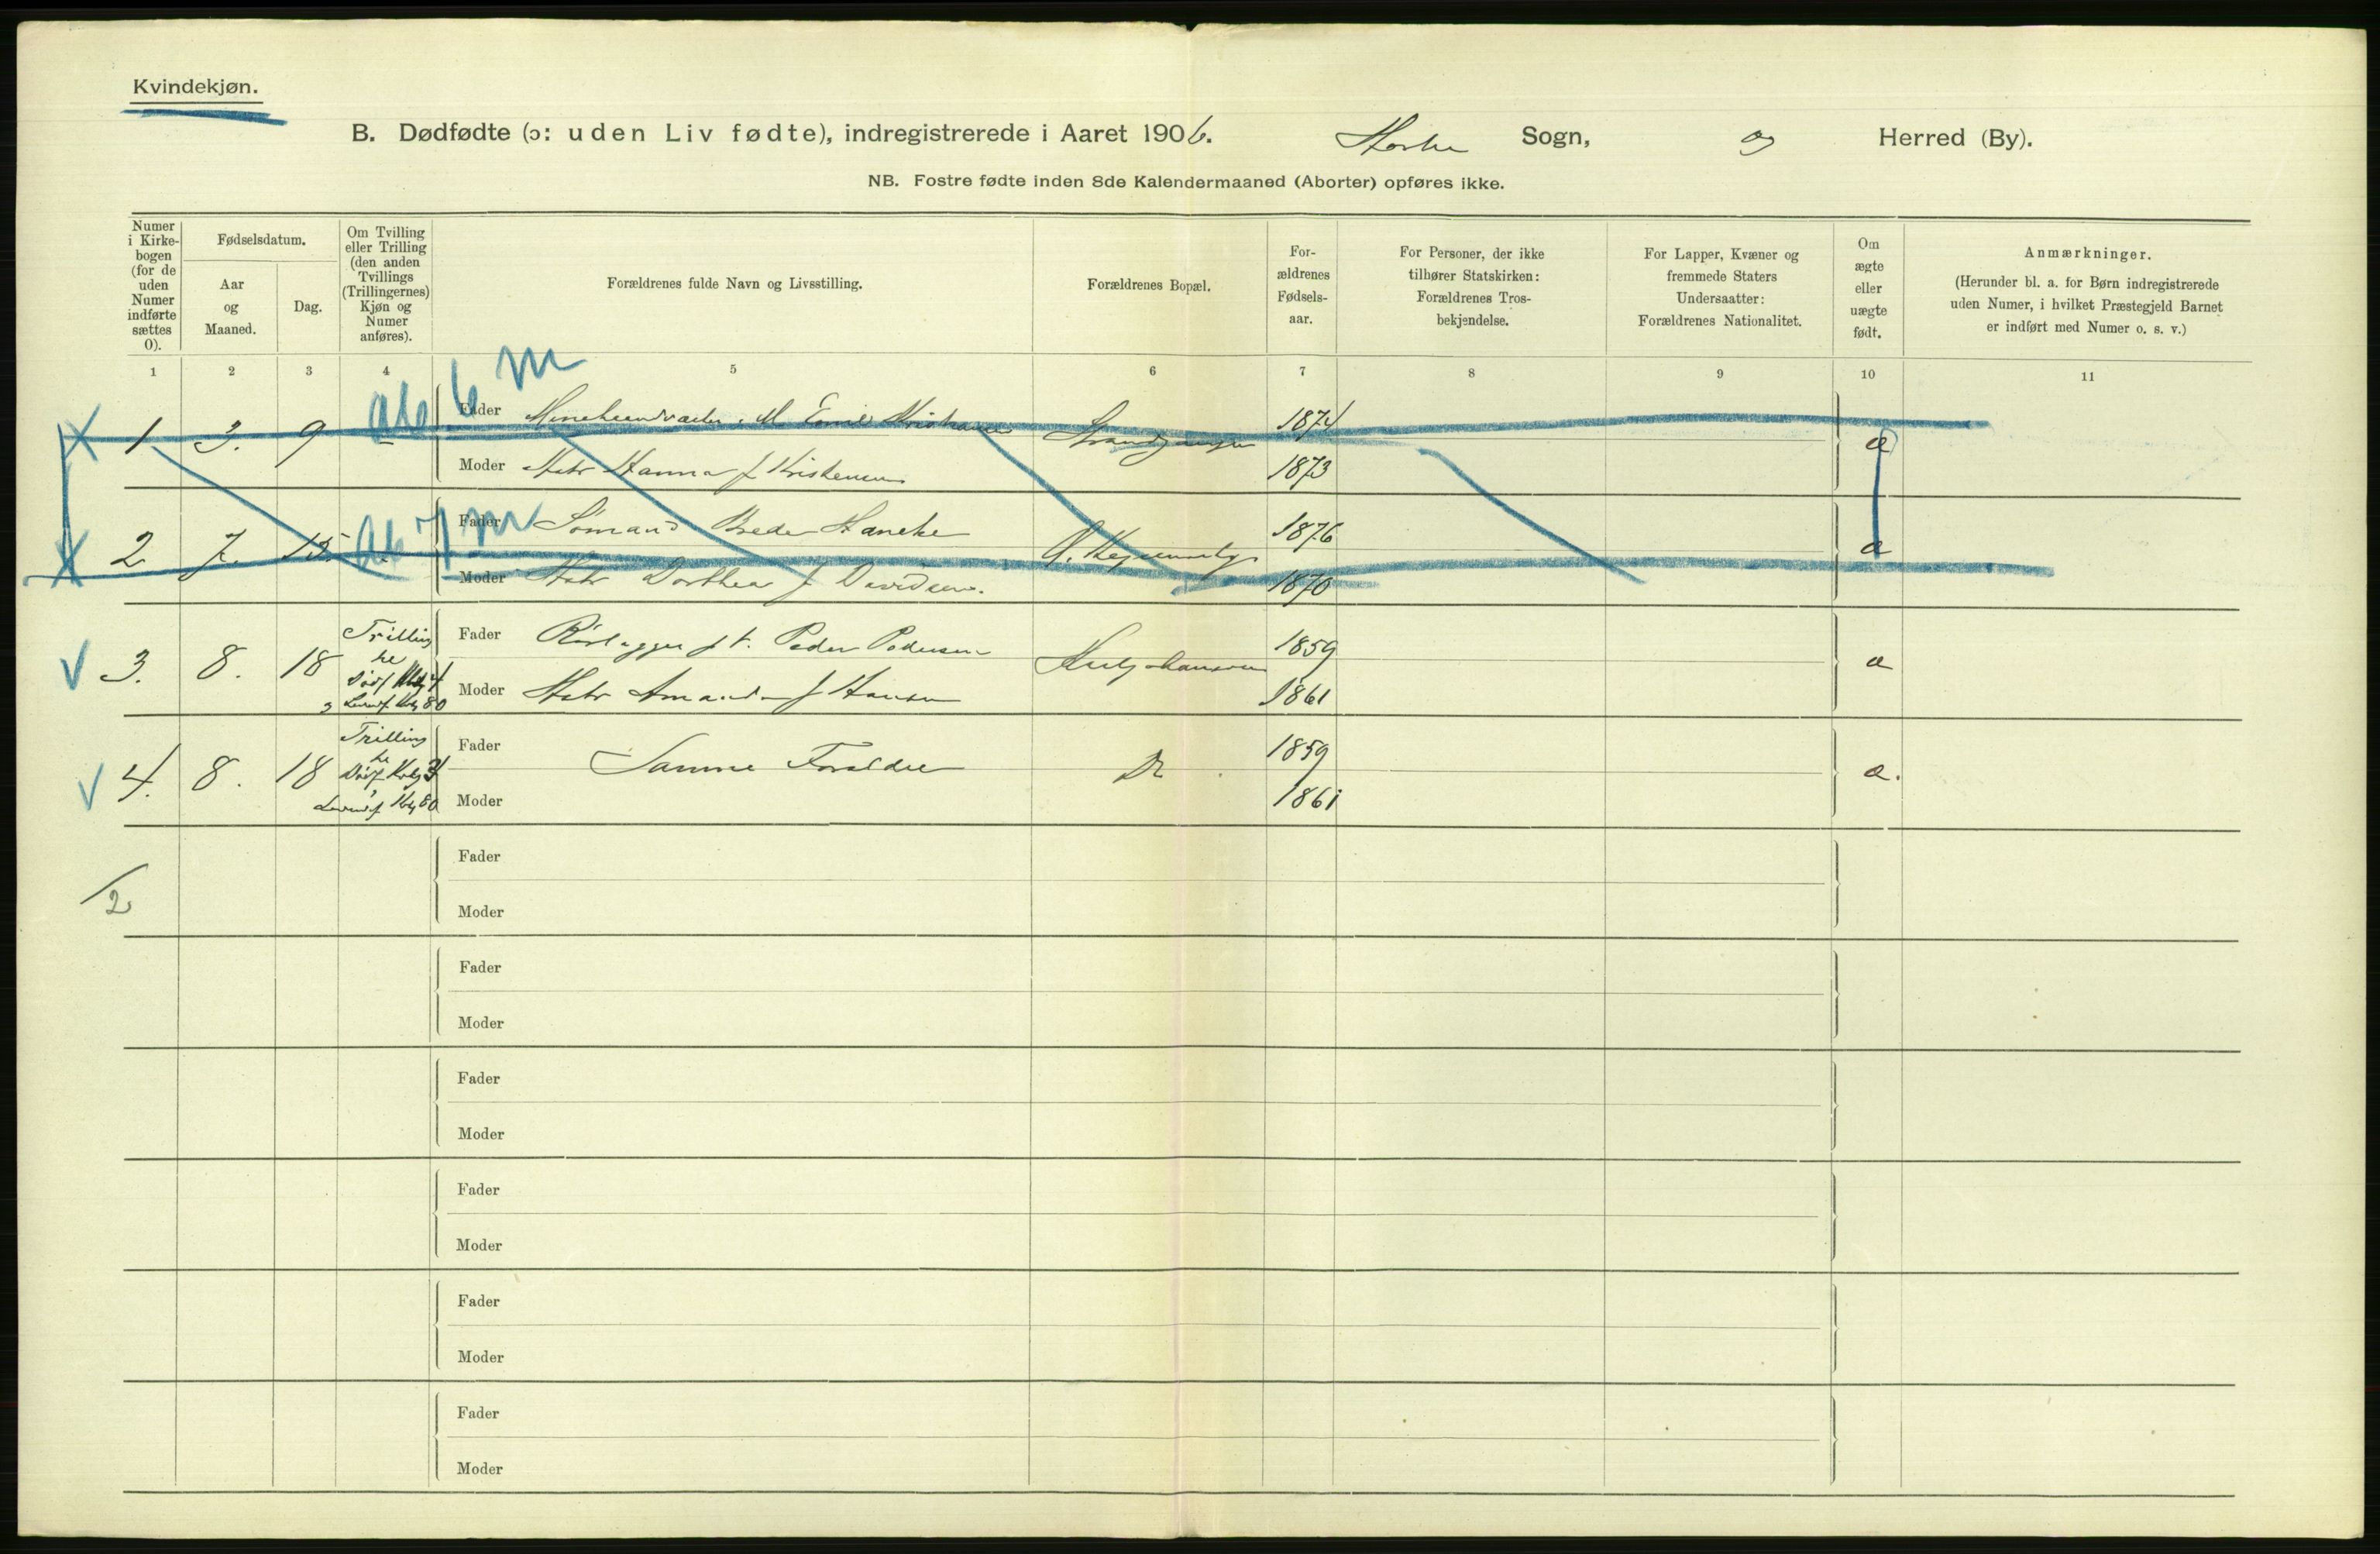 Kvindekjøn.
B. Dødfødte (ɔ: uden Liv fødte), indregistrerede i Aaret 1906. Sogn, og Herred (By).
NB. Fostre fødte inden 8de Kalendermaaned (Aborter) opføres ikke.
Numer i Kirke-
bogen
(for de
uden
Numer
indførte
sættes
0).
Fødselsdatum.
Aar
og
Maaned.
Dag.
Om Tvilling
eller Trilling
(den anden
Tvillings
(Trillingernes)
Kjøn og
Numer
anføres).
Forældrenes fulde Navn og Livsstilling.
Forældrenes Bopæl.
For-
ældrenes
Fødsels-
aar.
For Personer, der ikke
tilhører Statskirken:
Forældrenes Tros-
bekjendelse.
For Lapper, Kvæner og
fremmede Staters
Undersaatter:
Forældrenes Nationalitet.
Om
ægte
eller
uægte
født.
Anmærkninger.
(Herunder bl. a. for Børn indregistrerede
uden Numer, i hvilket Præstegjeld Barnet
er indført med Numer o. s. v.)
1 2 3 4 5 6 7 8 9 10 11
Ab 6 m
1 3. 9 Fader Emil 1874 æ
Moder Hanna f Kristensen 1873
2 7. 15 Ab 7 m Fader Sømand Peder Hancke 1876 æ
Moder Dorthea f Davidsen. 1870
3. 8. 18 Trilling Fader Peder Pedersen 1859 æ
80 Moder Amanda f Hansen 1861
4. 8. 18 Trilling Fader Samme Forældre Do 1859 æ.
80 Moder 1861
Fader
/2
Moder
Fader
Moder
Fader
Moder
Fader
Moder
Fader
Moder
Fader
Moder